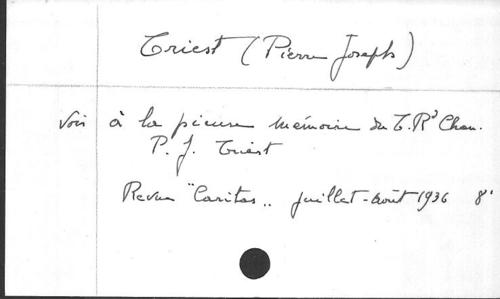 Triest (Pierre Joseph)
Voir à la pieuse mémoire du T. Rd Chan.
P. J. Triest
Revue "Caritas" juillet-août 1936 8°